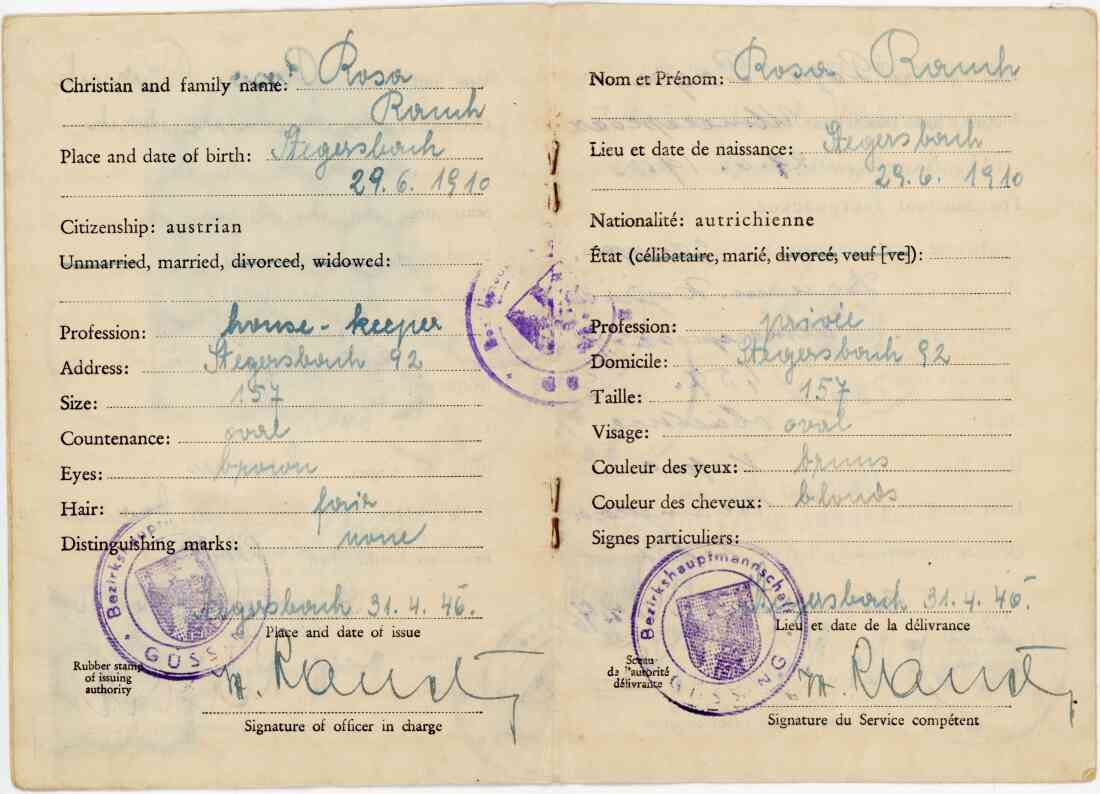 Christian and family name: Rosa
Rauch
Place and date of birth: Stegersbach
29.6. 1910
Citizenship: austrian
Unmarried, married, divorced, widowed:
Profession: house-keeper
Address: Stegersbach 92
Size: 157
Countenance: oval
Eyes: brown
Hair: fair
Distinguishing marks: none
Bezirkshaupt
GÜSS
Stegersbach 31.4.46.
Place and date of issue
Rubber stamp
of issuing
authority
Signature of officer in charge
Nom et Prénom: Rosa Rauch
Lieu et date de naissance: Stegersbach
29.6. 1910
Nationalité: autrichienne
État (célibataire, marié, divorcé, veuf [ve]):
Profession: privée
Domicile: Stegersbach 92
Taille: 157
Visage: oval
Couleur des yeux: bruns
Couleur des cheveux: blonds
Signes particuliers:
Bezirkshauptmannschaft
GÜSSING
Stegersbach 31.4.46.
Lieu et date de la délivrance
Sceau
de l'autorité
délivrante
Signature du Service compétent